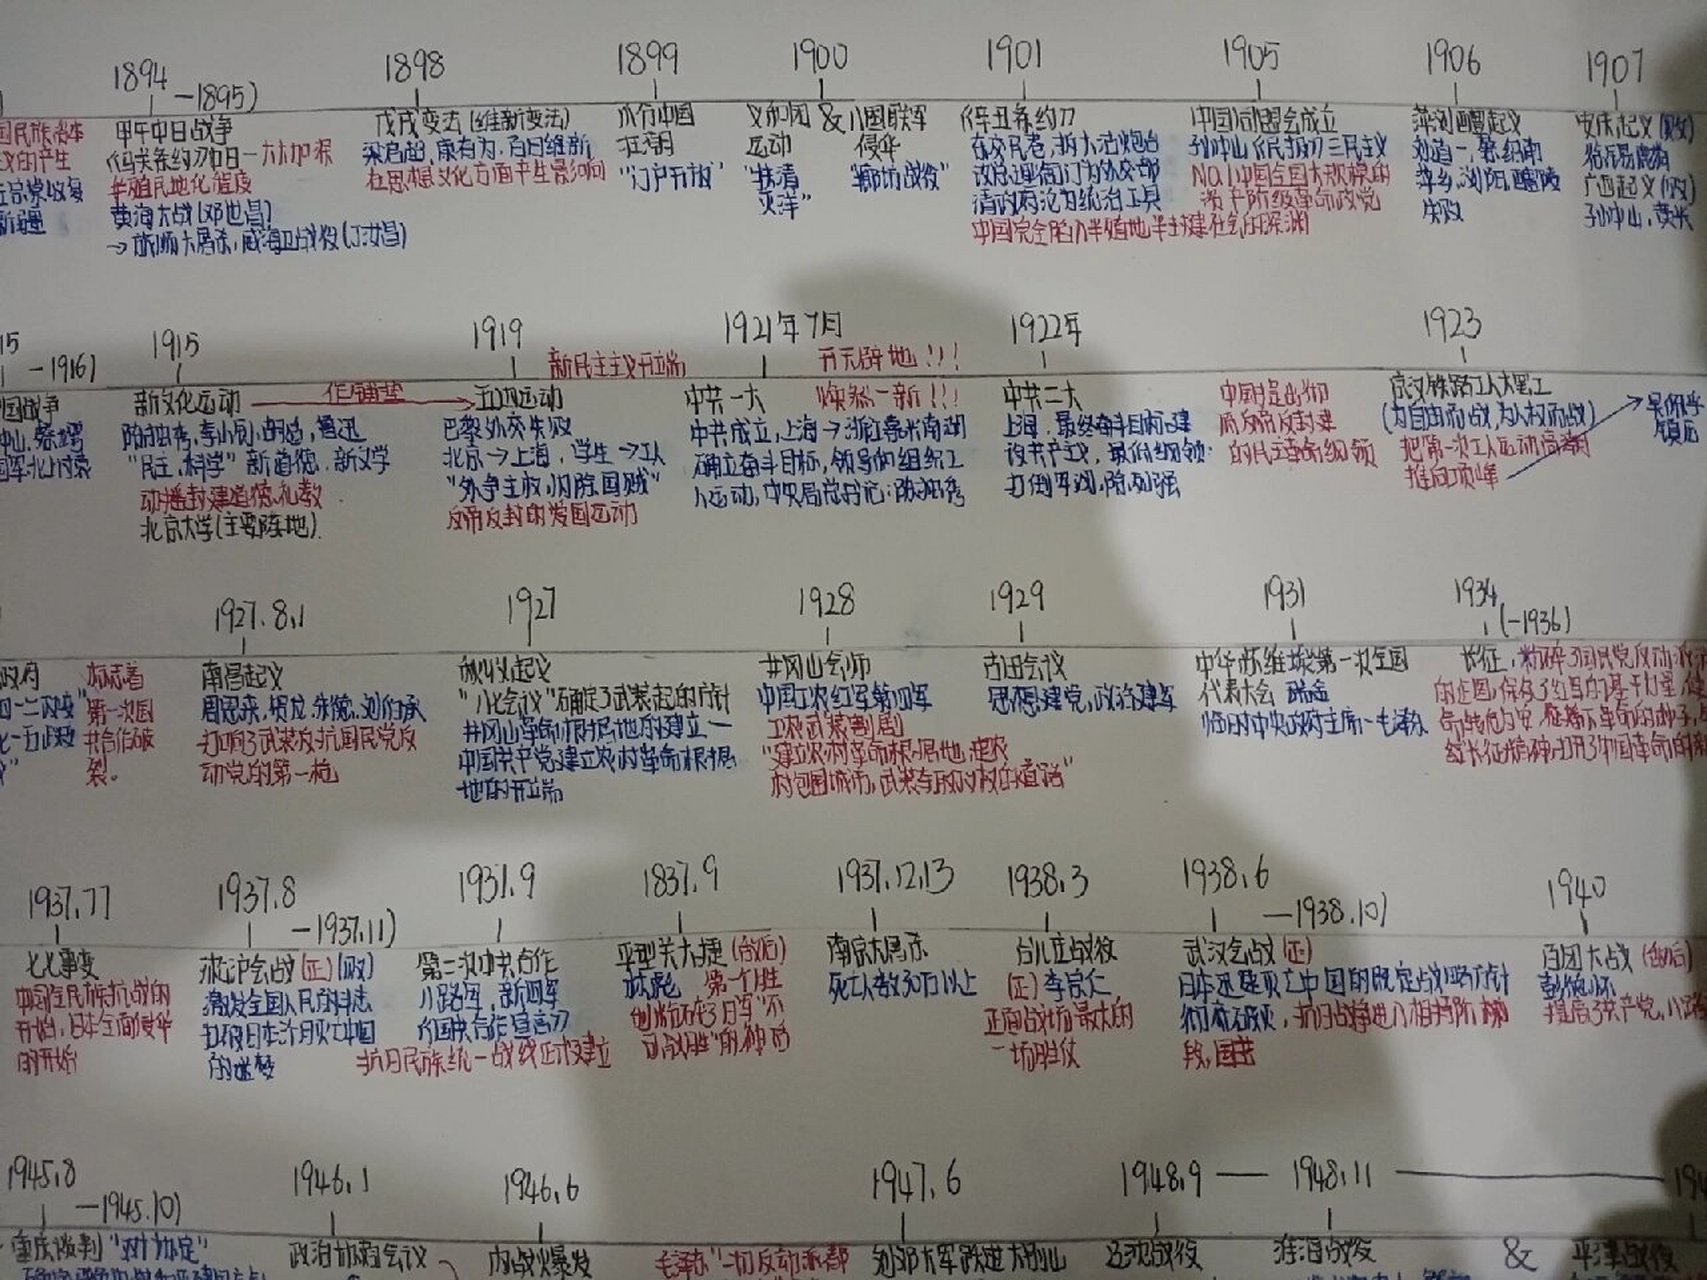 1894 —1895) 1898 1899 1900 1901 1905 1906 1907
甲午中日战争
《马关条约》加日—大大加深
半殖民地化程度
黄海大战(邓世昌)
→旅顺大屠杀,威海卫战役(丁汝昌)
戊戌变法(维新变法)
梁启超,康有为,百日维新
在思想文化方面产生影响
瓜分中国
狂潮
"门户开放"
义和团 & 八国联军
运动 侵华
"扶清
灭洋"
"廊坊战役"
《辛丑条约》
东交民巷,拆大沽炮台
改总理衙门为外交部
清政府沦为统治工具
中国完全陷入半殖地半封建社会的深渊
中国同盟会成立
孙中山《民报》三民主义
NO.1中国全国大规模的
资产阶级革命政党
萍浏醴起义
萍乡,浏阳,醴陵
失败
安庆起义(败)
广西起义(败)
孙中山,黄兴
15 —1916) 1915 1919 1921年7月 1922年 1923
国战争
新文化运动 作铺垫 五四运动
陈独秀,李大钊,胡适,鲁迅
"民主,科学"新道德,新文学
动摇封建道德礼教
北京大学(主要阵地).
新民主主义开端
巴黎外交失败
北京→上海,学生→工人
"外争主权,内除国贼"
反帝反封的爱国运动
开天辟地!!!
中共一大 焕然一新!!!
中共成立,上海→浙江嘉兴南湖
确立奋斗目标,领导的组织工
人运动,中央局总书记:陈独秀
中共二大
上海,最终奋斗目标:建
设共产主义,最低纲领:
打倒军阀,除列强
中国提出彻
底反帝反封建
的民主革命纲领
京汉铁路工人大罢工
(为自由而战,为人权而战)
把第一次工人运动高潮
推向顶峰
1927.8.1 1927 1928 1929 1931 1934 (—1936)
政府
标志着
第一次国
共合作破
裂。
南昌起义
周恩来,贺龙,朱德,刘伯承
打响了武装反抗国民党反
动党的第一枪
秋收起义
"八七会议"确定了武装起的方针
井冈山革命根据地的建立—
中国共产党建立农村革命根据
地的开端
井冈山会师
中国工农红军第四军
工农武装割据
"建立农村革命根据地,走农
村包围城市,武装夺取政权的道路"
古田会议
思想建党,政治建军
中华苏维埃第一次全国
代表大会 瑞金
临时中央政府主席—毛泽东
长征,粉碎了国民党反动派
1937.7.7 1937.8 —1937.11) 1937.9 1837.9 1937.12.13 1938.3 1938.6 —1938.10) 1940
七七事变
中国全民族抗战的
开始,日本全面侵华
的开始
淞沪会战(正)(败)
激发全国人民的斗志
打破日本三个月灭亡中国
的迷梦
第二次国共合作
八路军,新四军
《国共合作宣言》
抗日民族统一战线正式建立
平型关大捷(敌后)
林彪 第一个胜
南京大屠杀
死亡人数30万以上
台儿庄战役
(正)李宗仁
正面战场最大的
一场胜仗
武汉会战(正)
日本迅速灭亡中国的既定战略方针
彻底破灭,抗日战争进入相持阶
段,国共
百团大战(敌后)
彭德怀
提高了共产党,八路
1945.8 —1945.10) 1946.1 1946.6 1947.6 1948.9 — 1948.11 —
重庆谈判"双十协定"
政治协商会议
内战爆发
毛泽东"一切反动派都
刘邓大军跃进大别山
辽沈战役
淮海战役
& 平津战役